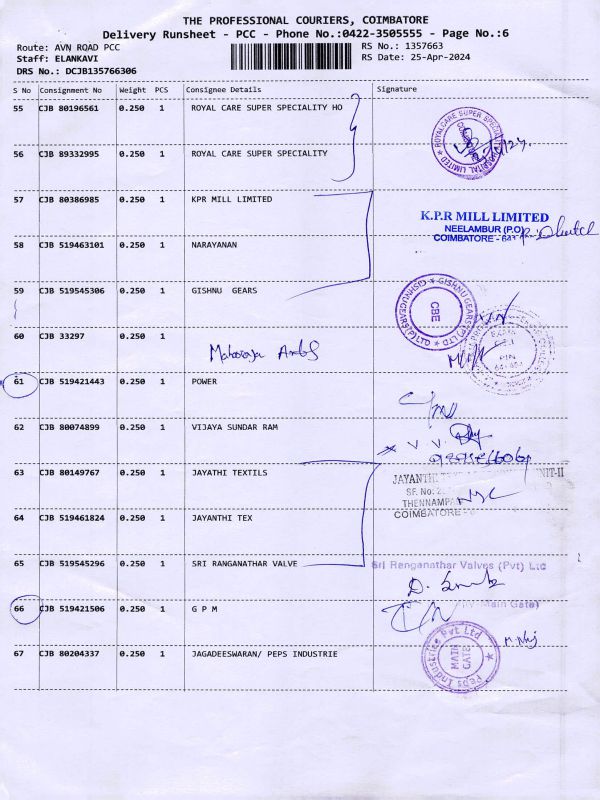 THE PROFESSIONAL COURIERS, COIMBATORE
Delivery Runsheet - PCC - Phone No.:0422-3505555 - Page No.:6
Route: AVN ROAD PCC
RS No.: 1357663
Staff: ELANKAVI
RS Date: 25-Apr-2024
DRS No.: DCJB135766306
S No Consignment No Weight PCS Consignee Details Signature
55 CJB 80196561 0.250 1 ROYAL CARE SUPER SPECIALITY HO
56 CJB 89332995 0.250 1 ROYAL CARE SUPER SPECIALITY
57 CJB 80386985 0.250 1 KPR MILL LIMITED
K.P.R MILL LIMITED
NEELAMBUR (P.O)
COIMBATORE - 641
58 CJB 519463101 0.250 1 NARAYANAN
59 CJB 519545306 0.250 1 GISHNU GEARS
GISHNU GEARS (P) LTD
CBE
60 CJB 33297 0.250 1
61 CJB 519421443 0.250 1 POWER
62 CJB 80074899 0.250 1 VIJAYA SUNDAR RAM
63 CJB 80149767 0.250 1 JAYATHI TEXTILS
JAYANTHI UNIT-II
SF. No:
THENNAMPA
COIMBATORE -
64 CJB 519461824 0.250 1 JAYANTHI TEX
65 CJB 519545296 0.250 1 SRI RANGANATHAR VALVE
Sri Ranganathar Valves (Pvt) Ltd
66 CJB 519421506 0.250 1 G P M
Main Gate)
67 CJB 80204337 0.250 1 JAGADEESWARAN/ PEPS INDUSTRIE
Peps Industries Pvt Ltd
MAIN
GATE